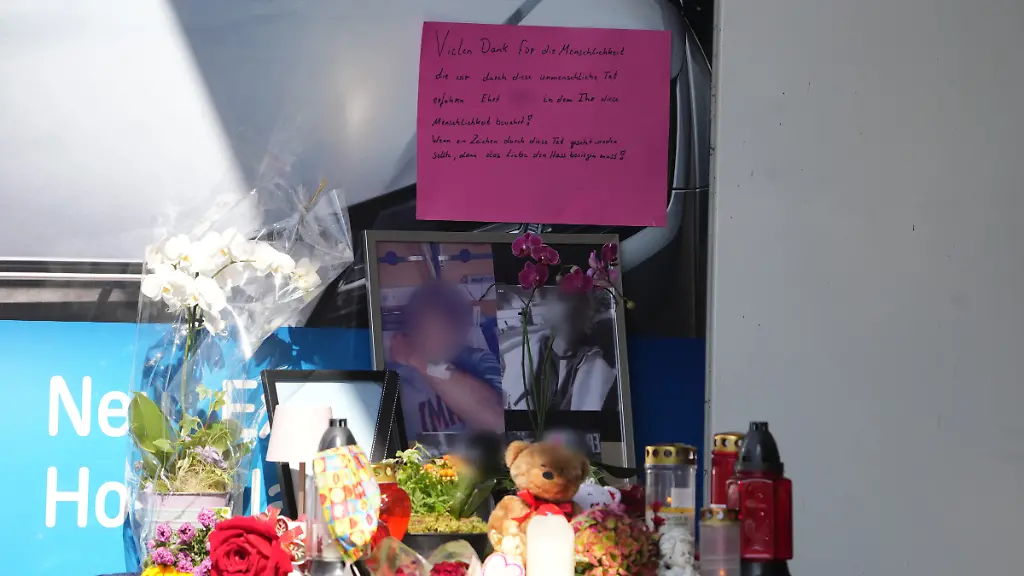 Vielen Dank für die Menschlichkeit
die wir durch diese unmenschliche Tat
erfahren Ehrt in dem Ihr diese
Menschlichkeit bewahrt!
Wenn ein Zeichen durch diese Tat gesetzt werden
sollte, dann das Lieben den Hass besiegen muss!
Ne E
Ho